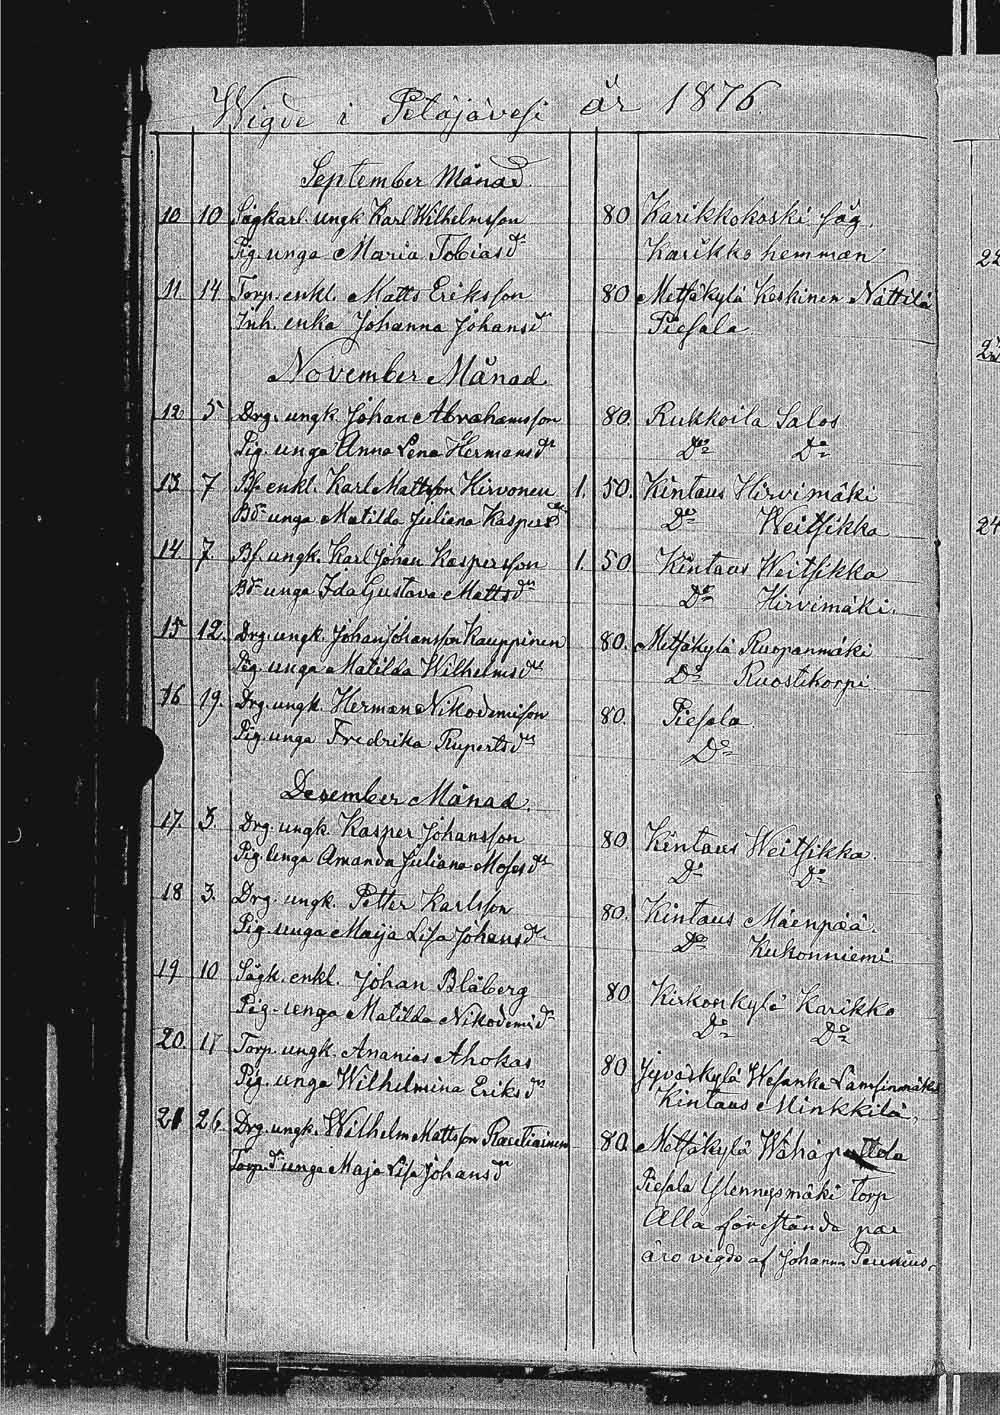 Wigde i Petäjävesi år 1876.
September Månad.
10 10 Sågkarl. ungk Karl Wilhelmsson 80. Karikkokoski såg.
Pig. unga Maria Tobiasdr Karikko hemman
11 14 Torp. enkl. Matts Eriksson 80 Metsäkylä Keskinen Nättilä
Inh. enka Johanna Johansdr Piesala
November Månad
12 5 Drg. ungk. Johan Abrahamsson 80. Rukkoila Salos
Pig. unga Anna Lena Hermansdr Do Do
13 7 Bf. enkl. Karl Mattsson Hirvonen 1. 50. Kintaus Hirvimäki
Bd. unga Matilda Juliana Kaspersdr Do Weitsikko
14 7 Bf. ungk. Karl Johan Kaspersson 1. 50 Kintaus Weitsikko
Bd. unga Ida Gustava Mattsdr Do Hirvimäki.
15 12. Drg. ungk. Johan Johansson Kauppinen 80. Metsäkylä Ruopanmäki
Pig. unga Matilda Wilhelmsdr Do Ruostikorpi
16 19. Drg. ungk. Herman Nikodemisson 80. Piesala
Pig. unga Fredrika Rupertsdr Do
Desember Månad.
17. 3. Drg. ungk. Kasper Johansson 80. Kintaus Weitsikko.
Pig. Unga Amanda Juliana Mosesdr Do Do
18 3. Drg. ungk. Petter Karlsson 80. Kintaus Mäenpää.
Pig. unga Maija Lisa Johansdr. Do Kukonniemi
19 10 Sågk. enkl. Johan Blåberg 80 Kirkonkylä Karikko
Pig. unga Matilda Nikodemidr Do Do
20. 17 Torp. ungk. Ananias Ahokas 80 Jyväskylä Wesanka Lamsinmäki
Pig. unga Wilhelmina Eriksdr Kintaus Minkkilä,
21 26. Drg. ungk. Wilhelm Mattsson Rautiainen 80. Metsäkylä Wähä
Torp.d unga Maja Lisa Johansdr Piesala Ylennysmäki torp
Alla förestånde par
äro vigde af Johannes